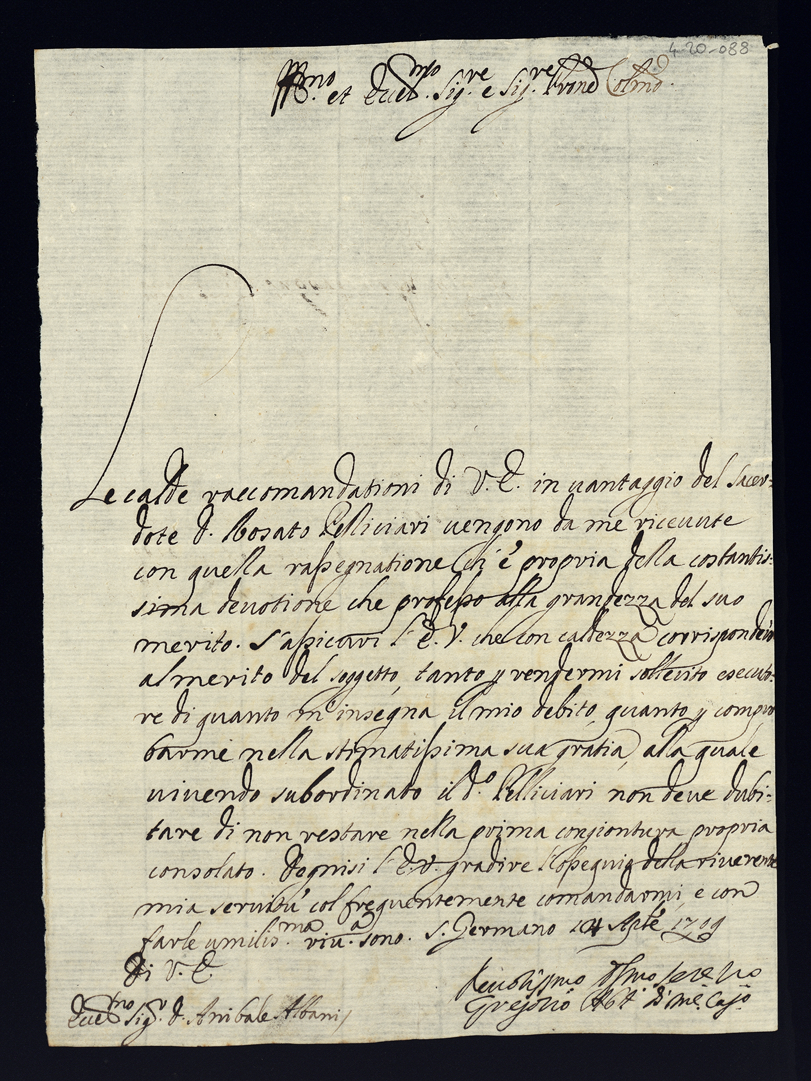 4-20-088
Ill.mo et Ecc.mo Sig.re e Sig.re Pron̄e Col.mo
Le calde raccomandationi di V. E. in vantaggio del Sacer-
dote D. Rosato Pelliciari vengono da me ricevute
con quella rassegnatione ch'è propria della costantis:
sima devotione che professo alla grandezza del suo
merito. S'assicuri l'E. V. che con caldezza corrisponderò
al merito del soggetto, tanto p rendermi sollecito esecuto-
re di quanto m'insegna il mio debito, quanto p compro
barmi nella stimatissima sua gratia, alla quale
vivendo subordinato il d.o Pelliciari non deve dubi-
tare di non restare nella prima congiontura propria
consolato. Degnisi l'E. V. gradire l'ossequio della riverente
mia servitù col frequentemente comandarmi, e con
farle umilis.ma riv.a sono. S. Germano 14 Aple 1709
Di V. E.
Devotissmo Obmo Serv vro
Ecc.mo Sig.r D. Anibale Albani
Gregorio Ab.e di M.e Cas.o